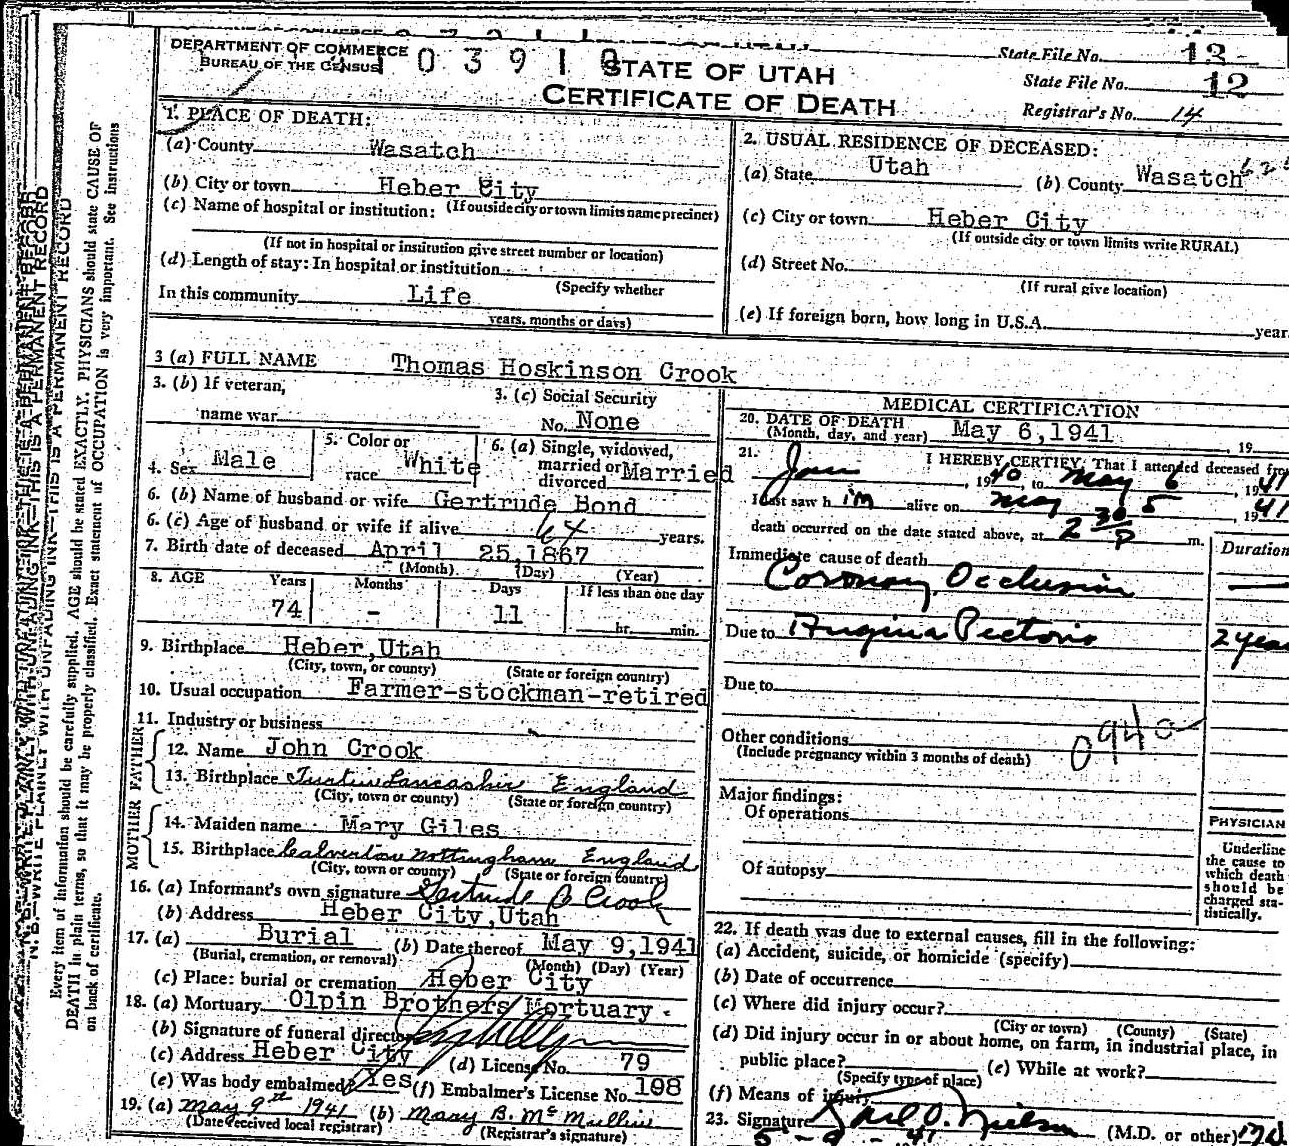 DEPARTMENT OF COMMERCE
BUREAU OF THE CENSUS
0 3 9 1 0
STATE OF UTAH
CERTIFICATE OF DEATH
State File No. 13
State File No. 12
Registrar's No. 14
1. PLACE OF DEATH:
(a) County Wasatch
(b) City or town Heber City
(c) Name of hospital or institution: (If outside city or town limits name precinct)
(If not in hospital or institution give street number or location)
(d) Length of stay: In hospital or institution
(Specify whether
In this community Life
years, months or days)
2. USUAL RESIDENCE OF DECEASED:
(a) State Utah (b) County Wasatch
(c) City or town Heber City
(If outside city or town limits write RURAL)
(d) Street No.
(If rural give location)
(e) If foreign born, how long in U.S.A. year
3 (a) FULL NAME Thomas Hoskinson Crook
3. (b) If veteran,
name war
3. (c) Social Security
No. None
4. Sex Male
5. Color or
race White
6. (a) Single, widowed,
married or
divorced Married
6. (b) Name of husband or wife Gertrude Bond
6. (c) Age of husband or wife if alive 64 years.
7. Birth date of deceased April 25, 1867
(Month) (Day) (Year)
8. AGE Years Months Days If less than one day
74 - 11 hr. min.
9. Birthplace Heber, Utah
(City, town, or county) (State or foreign country)
10. Usual occupation Farmer-stockman-retired
11. Industry or business
FATHER
12. Name John Crook
13. Birthplace Lancashire England
(City, town or county) (State or foreign country)
MOTHER
14. Maiden name Mary Giles
15. Birthplace Calverton Nottingham England
(City, town or county) (State or foreign country)
16. (a) Informant's own signature Gertrude B Crook
(b) Address Heber City, Utah
17. (a) Burial (b) Date thereof May 9, 1941
(Burial, cremation, or removal) (Month) (Day) (Year)
(c) Place: burial or cremation Heber City
18. (a) Mortuary Olpin Brothers Mortuary.
(b) Signature of funeral director
(c) Address Heber City (d) License No. 79
(e) Was body embalmed? Yes (f) Embalmer's License No. 108
19. (a) May 9th 1941 (b) Mary B. McMullin
(Date received local registrar) (Registrar's signature)
MEDICAL CERTIFICATION
20. DATE OF DEATH
(Month, day, and year) May 6, 1941 , 19
21. I HEREBY CERTIFY, That I attended deceased from
Jan , 1940, to May 6 , 1941
I last saw h im alive on May 5 , 1941
death occurred on the date stated above, at 2 30 P m.
Duration
Immediate cause of death
Coronary Occlusion
Due to Angina Pectoris 2 years
Due to
0940
Other conditions
(Include pregnancy within 3 months of death)
Major findings:
Of operations
Of autopsy
PHYSICIAN
Underline
the cause to
which death
should be
charged sta-
tistically.
22. If death was due to external causes, fill in the following:
(a) Accident, suicide, or homicide (specify)
(b) Date of occurrence
(c) Where did injury occur?
(City or town) (County) (State)
(d) Did injury occur in or about home, on farm, in industrial place, in
public place? (e) While at work?
(Specify type of place)
(f) Means of injury
23. Signature Karl O. Nielson (M.D. or other) M.D.
N. B.—WRITE PLAINLY WITH UNFADING INK—THIS IS A PERMANENT RECORD
Every item of information should be carefully supplied. AGE should be stated EXACTLY. PHYSICIANS should state CAUSE OF
DEATH in plain terms, so that it may be properly classified. Exact statement of OCCUPATION is very important. See Instructions
on back of certificate.